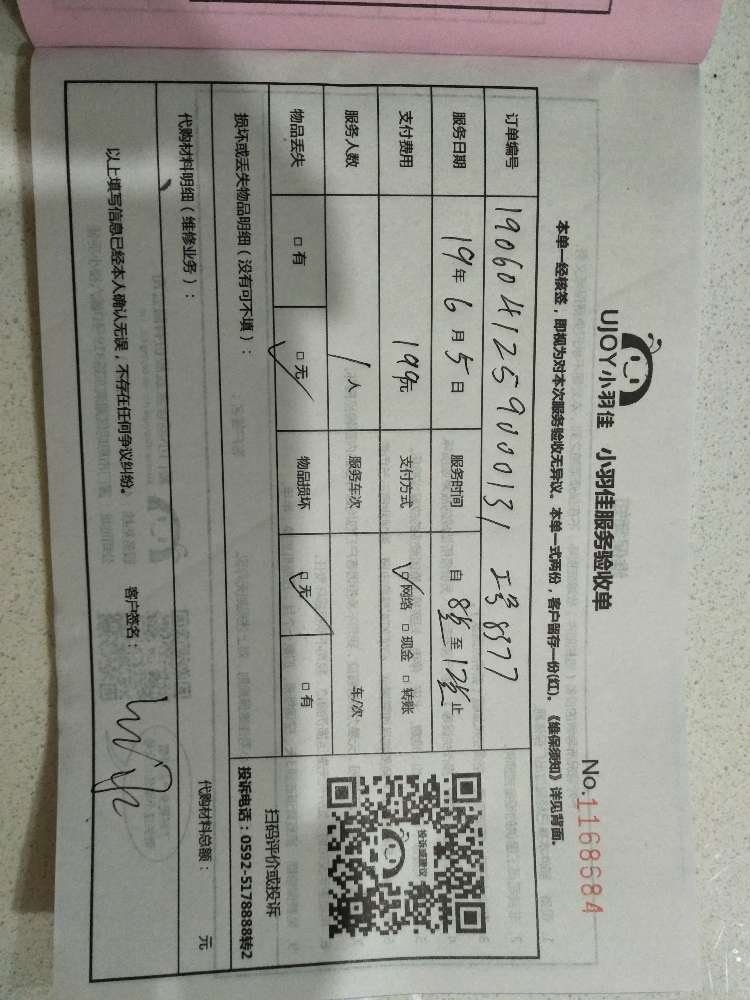 UJOY小羽佳 小羽佳服务验收单
No.1168684
本单一经核签，即视为对本次服务验收无异议。本单一式两份，客户留存一份(红)。《维保须知》详见背面。
订单编号 1906041259000131 工号8377
服务日期 19年6月5日 服务时间 自8点至12点止
支付费用 199元 支付方式 □网络 □现金 □转账
服务人数 1人 服务车次 车/次
物品丢失 □有 □无 物品损坏 □无 □有
投诉或建议
扫码评价或投诉
投诉电话：0592-5178888转2
损坏或丢失物品明细（没有可不填）：
代购材料明细（维修业务）：
代购材料总额： 元
以上填写信息已经本人确认无误，不存在任何争议纠纷。 客户签名：